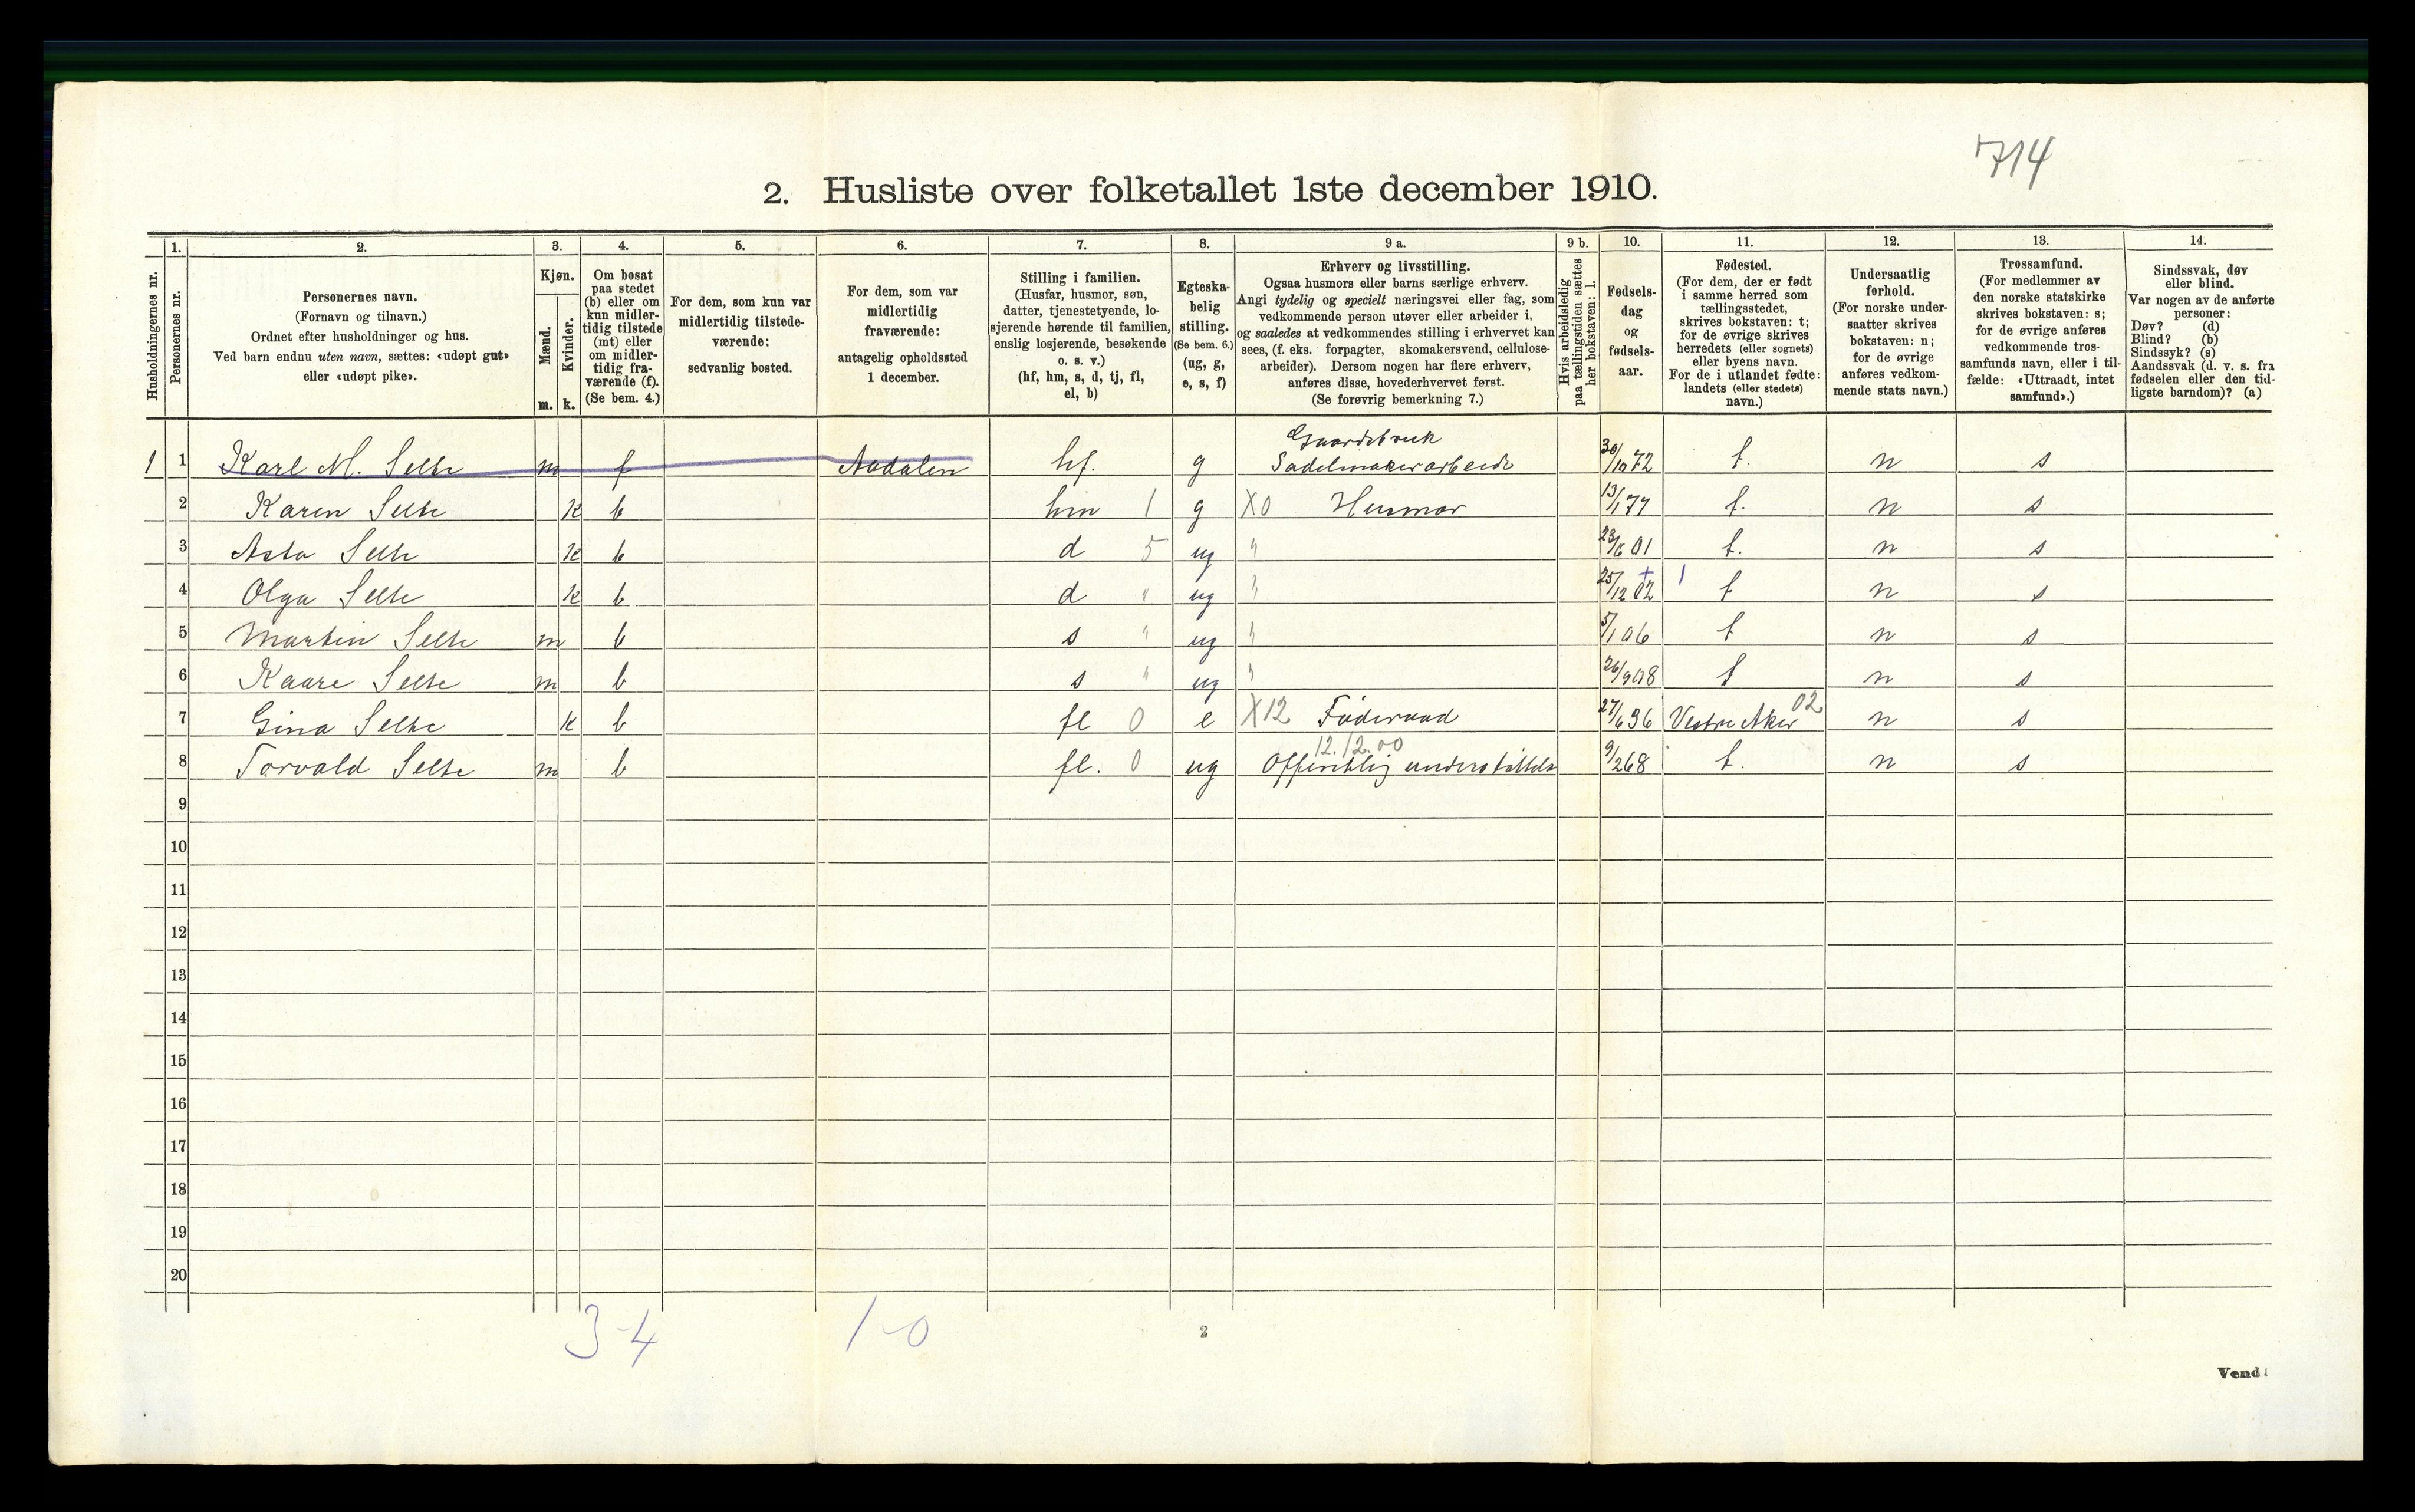 714
2. Husliste over folketallet 1ste december 1910.
Husholdningernes nr.
1.
Personernes nr.
2.
Personernes navn.
(Fornavn og tilnavn.)
Ordnet efter husholdninger og hus.
Ved barn endnu uten navn, sættes: «udøpt gut»
eller «udøpt pike».
3.
Kjøn.
Mænd.
Kvinder.
m. k.
4.
Om bosat
paa stedet
(b) eller om
kun midler-
tidig tilstede
(mt) eller
om midler-
tidig fra-
værende (f).
(Se bem. 4.)
5.
For dem, som kun var
midlertidig tilstede-
værende:
sedvanlig bosted.
6.
For dem, som var
midlertidig
fraværende:
antagelig opholdssted
1 december.
7.
Stilling i familien.
(Husfar, husmor, søn,
datter, tjenestetyende, lo-
sjerende hørende til familien,
enslig losjerende, besøkende
o. s. v.)
(hf, hm, s, d, tj, fl,
el, b)
8.
Egteska-
belig
stilling.
(Se bem. 6.)
(ug, g,
e, s, f)
9 a.
Erhverv og livsstilling.
Ogsaa husmors eller barns særlige erhverv.
Angi tydelig og specielt næringsvei eller fag, som
vedkommende person utøver eller arbeider i,
og saaledes at vedkommendes stilling i erhvervet kan
sees, (f. eks. forpagter, skomakersvend, cellulose-
arbeider). Dersom nogen har flere erhverv,
anføres disse, hovederhvervet først.
(Se forøvrig bemerkning 7.)
9 b.
Hvis arbeidsledig
paa tællingstiden sættes
her bokstaven: l.
10.
Fødsels-
dag
og
fødsels-
aar.
11.
Fødested.
(For dem, der er født
i samme herred som
tællingsstedet,
skrives bokstaven: t;
for de øvrige skrives
herredets (eller sognets)
eller byens navn.
For de i utlandet fødte:
landets (eller stedets)
navn.)
12.
Undersaatlig
forhold.
(For norske under-
saatter skrives
bokstaven: n;
for de øvrige
anføres vedkom-
mende stats navn.)
13.
Trossamfund.
(For medlemmer av
den norske statskirke
skrives bokstaven: s;
for de øvrige anføres
vedkommende tros-
samfunds navn, eller i til-
fælde: «Uttraadt, intet
samfund».)
14.
Sindssvak, døv
eller blind.
Var nogen av de anførte
personer:
Døv? (d)
Blind? (b)
Sindssyk? (s)
Aandssvak (d. v. s. fra
fødselen eller den tid-
ligste barndom)? (a)
Gaardsbruk
1 1 Karl M. Selte m f Aadalen hf. g Sadelmakerarbeide 30/10 72 t. n s
2 Karen Selte k b hm 1 g X0 Husmor 13/1 77 t. n s
3 Asta Selte k b d 5 ug " 23/6 01 t. n s
4 Olga Selte k b d " ug " 25/12 02 t n s
5 Martin Selte m b s " ug " 5/1 06 t n s
6 Kaare Selte m b s " ug " 26/9 08 t n s
7 Gina Selte k b fl 0 e X12 Føderaad 27/6 36 Vestre Aker 02 n s
12.12.00
8 Torvald Selte m b fl. 0 ug Offentlig understøttels 9/2 68 t. n s
9
10
11
12
13
14
15
16
17
18
19
20
3-4 1-0
2
Vend!